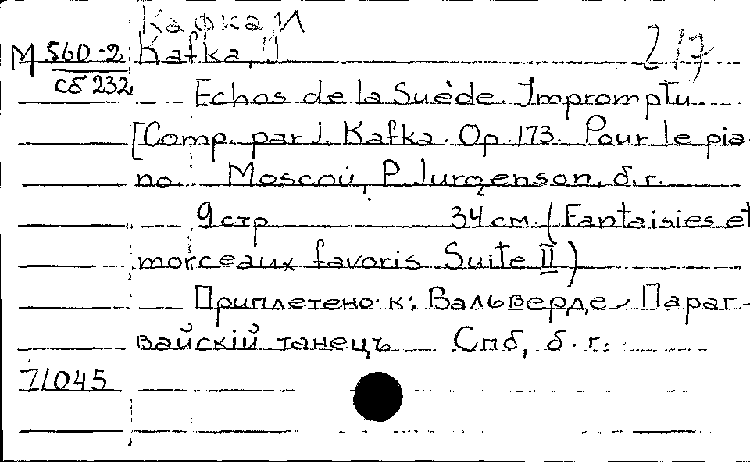 Кафка И
М 560-2 Kafka, J 2/7
сб 232
Echos de la Suède. Impromptu
[Comp. par J. Kafka. Op. 173. Pour le pia-
no. Moscou, P. Jurgenson, б.г.
9 стр 34 см. (Fantaisies et
morceaux favoris Suite II)
Приплетено к: Вальверде. Параг-
вайскій танецъ Спб, б.г.
71045